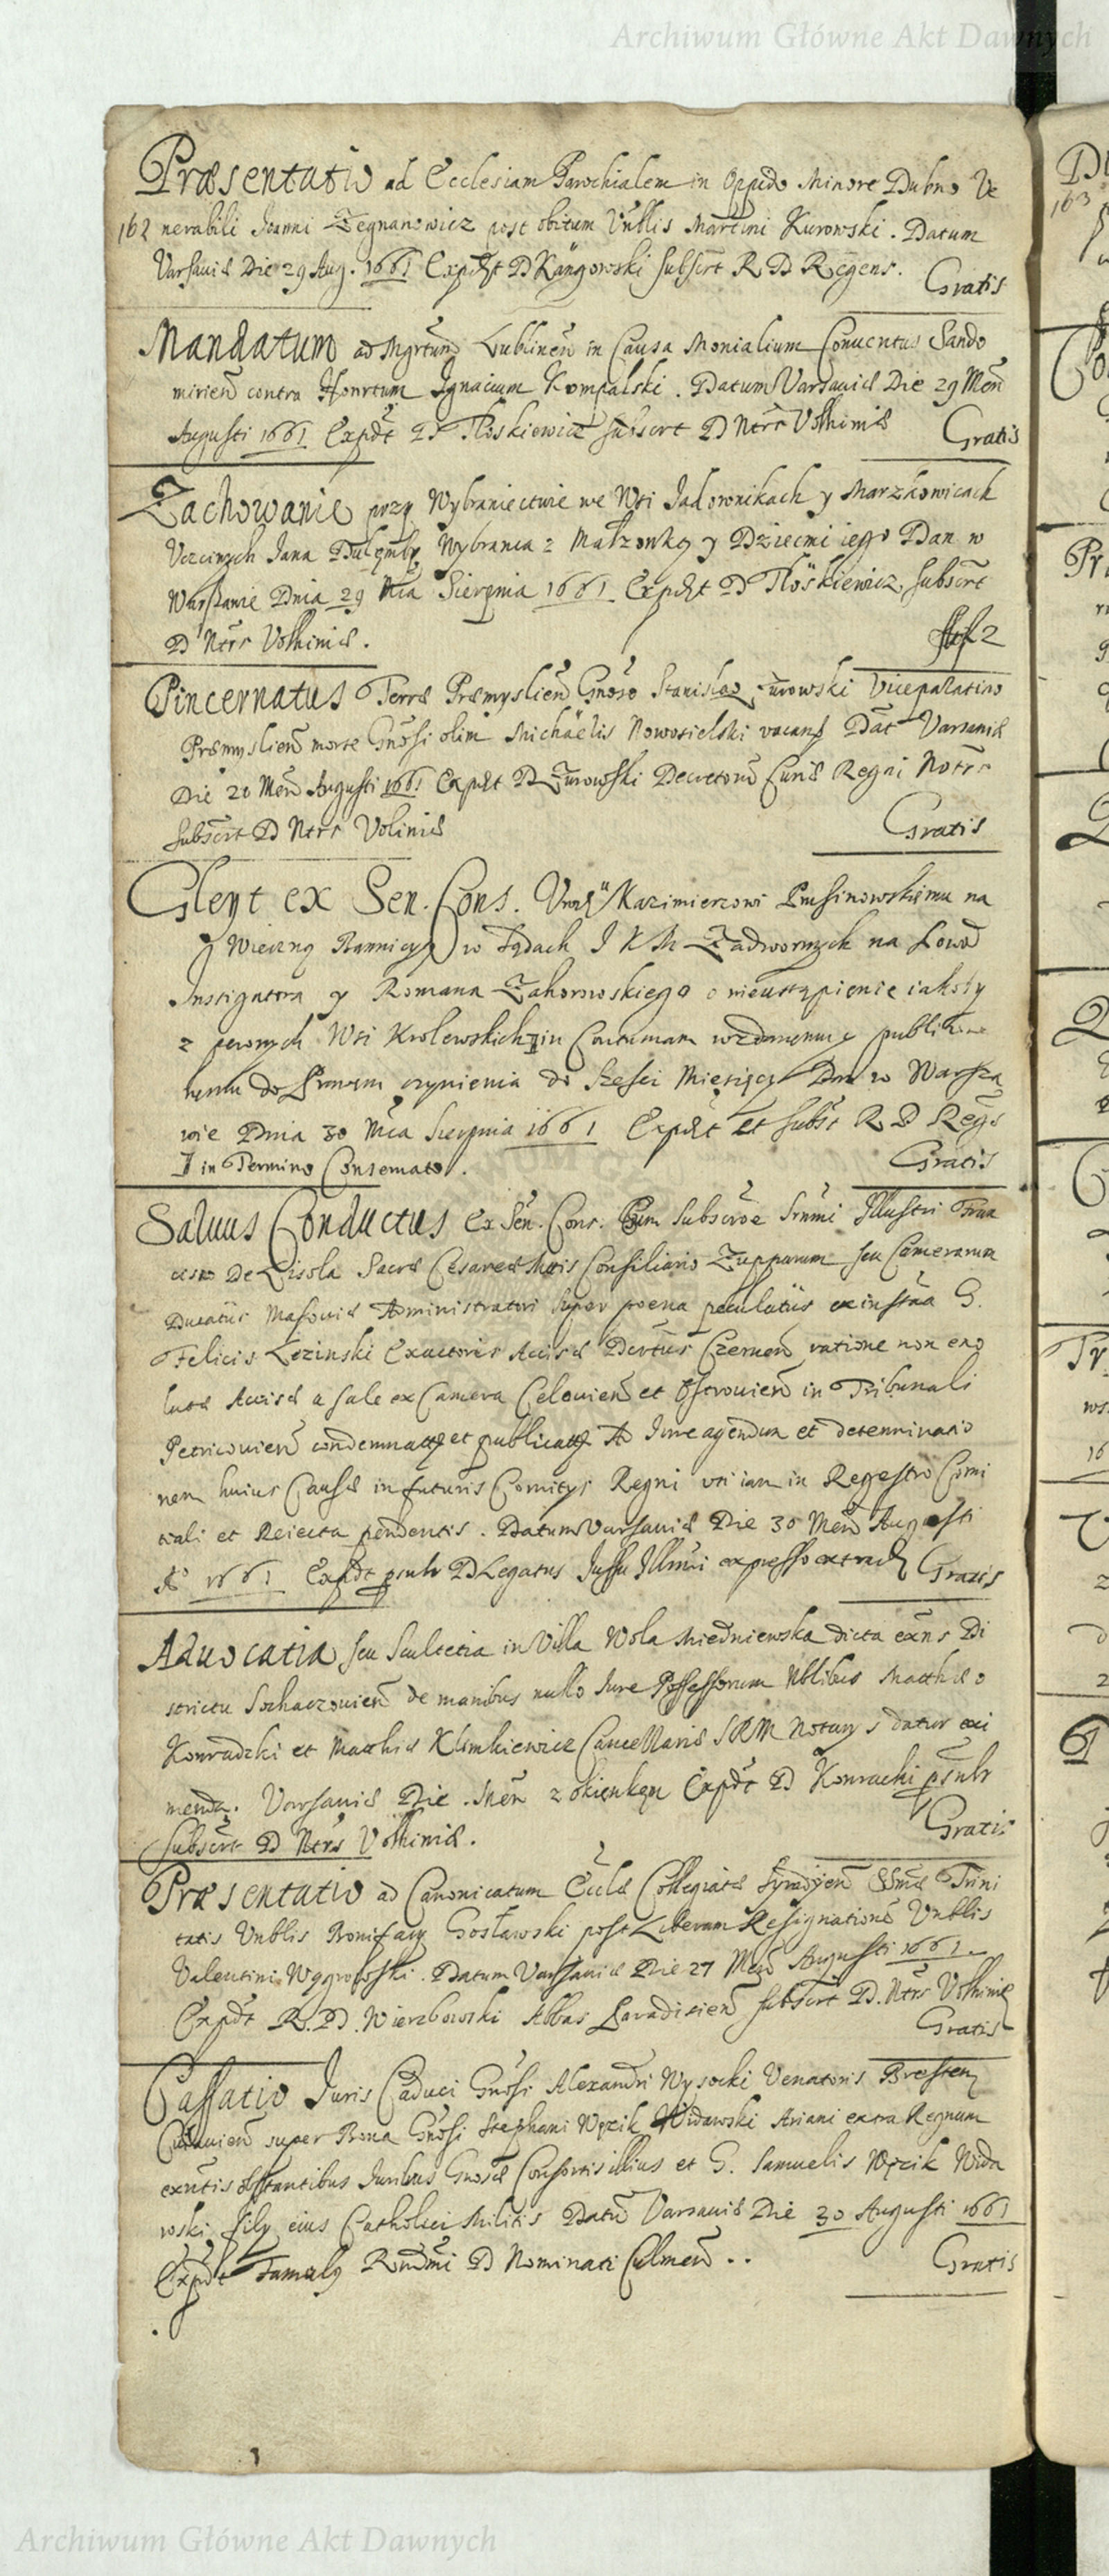 Archiwum Główne Akt Dawnych
Præsentatio ad Ecclesiam Parochialem in Oppido Minore Dubno Ve
162 nerabili Joanni Zegnanowicz post obitum Vnblis Martini Kurowski. Datum
Varsaviæ Die 29 Aug. 1661 Expdt D Kangowski subscrt R D Regens. Gratis
Mandatum ad Mgrtum Lublinen in Causa Monialium Conuentus Sando
mirien contra Honrtum Ignacium Kompalski. Datum Varsaviæ Die 29 Men
Augusti 1661 Expdt D Tloskiewicz subscrt D Ntrr Volhiniæ Gratis
Zachowanie przy Wybraniectwie we Wsi Jadownikach y Marzkowicach
Vczciwych Jana Wybranca z Małzonką y Dziecmi iego Dan w
Warszawie Dnia 29 Mca Sierpnia 1661 Expdt D Tloskiewicz subscrt
D Ntrr Volhiniæ.
Pincernatus Terræ Præmyslien Gnoso Stanislao Zurowski Vicepalatino
Præmyslien morte Gnosi olim Michaelis Nowosielski vacans Dat Varsaviæ
Die 20 Men Augusti 1661 Expdt D Zurowski Decretorum Curiæ Regni Notrr
subscrt D Ntrr Voliniæ Gratis
Gleyt ex Sen. Cons. Kazimierzowi Prusinowskiemu na
Wieczney w Sądach J K M Zadwornych na
Instigatora y Romana Zahorowskiego o nieustąpienie iakoby
z pewnych Wsi Krolewskich in Contumam wzdanemu y publiko
wanemu do czynienia do Szesci Miesięcy Dan w Warsza
wie Dnia 30 Mca Sierpnia 1661 Expdt et subst R D Regs
in Termino Conseruato. Gratis
Saluus Conductus ex Sen. Cons. Cum subscroe Srmi Illustri Fran
cisco De Lisola Sacræ Cesareæ Mtis Consiliario Zupparum seu Camerarum
Ducatus Masouiæ Administratori super poena peculatus ex instaa G.
Felicis Lezinski Exactoris Accisæ Czernen ratione non exo
lutæ Accisæ a sale ex Camera Celouien et Ostrouien in Tribunali
Petricouien condemnat et publicat Ad Jure agendum et determinatio
nem huius Causæ in futuris Comitys Regni vti iam in Regestro Comi
tiali et Reiecta pendentis. Datum Varsaviæ Die 30 Men Augusti
Ao 1661 Expdt psntr D Legatus Jussu Illmi expresso extrad Gratis
Aduocatia seu Scultetia in Villa Wola Miedniewska dicta exns Di
strictu Sochaczouien de manibus nullo Jure Possessorum Nblibus Matthæo
Konradzki et Matthiæ Klimkiewicz Cancellariæ SRM Notarys datur exi
menda. Varsaviæ Die . Men z okienkem Expdt D Konracki psntr
subscrt D Ntrs Volhiniæ. Gratis
Præsentatio ad Canonicatum Ecclæ Collegiatæ Syradien SSmæ Trini
tatis Vnblis Bonifacy Gosławski post Liberam Resignationem Vnblis
Valentini Wągrowski. Datum Varsaviæ Die 27 Men Augusti 1661.
Expdt R. D. Wierzbowski Abbas Paradisien subscrt D. Ntrs Volhiniæ
Gratis
Cassatio Juris Caduci Gnosi Alexandri Wysocki Venatoris Bresten
Cuiauien super Bona Gnosi Stephani Wązik Widawski Ariani extra Regnum
exntis obstantibus Juribus Gnosæ Consortis illius et G. Samuelis Wązik Wida
wski fily eius Catholici Militis Datum Varsaviæ Die 30 Augusti 1661
Expdt Famuly Rndmi D Nominati Culmen.. Gratis
Archiwum Główne Akt Dawnych